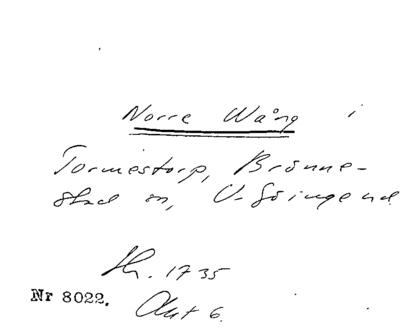 Norre Wång i
Tormestorp, Brönne-
stad sn, V. Göinge hd
Sk. 1735
Nr 8022.
Akt 6.